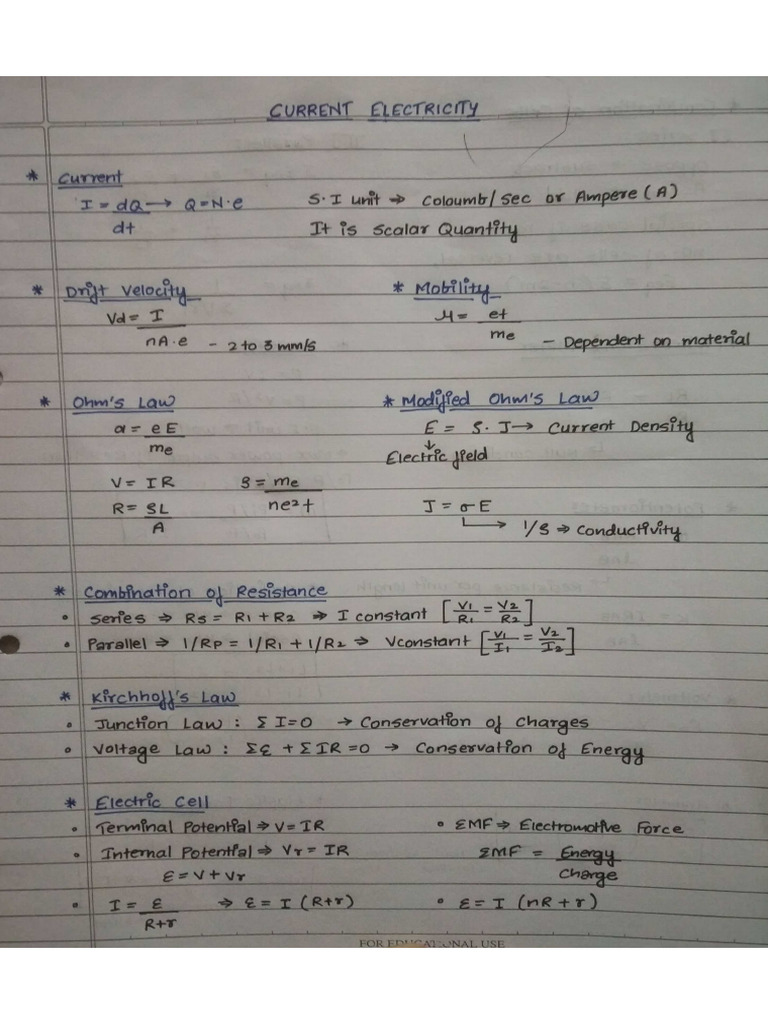 CURRENT ELECTRICITY
* Current
I = dQ/dt → Q=N·e
S·I unit ⇒ Coloumb/sec or Ampere (A)
It is Scalar Quantity
* Drift Velocity
Vd = I/nA·e - 2 to 3 mm/s
* Mobility
μ = et/me - Dependent on material
* Ohm's Law
a = eE/me
V = IR
R = SL/A
S = me/ne²t
* Modified Ohm's Law
E = S· J → Current Density
↓
Electric field
J = σE
→ 1/S ⇒ Conductivity
* Combination of Resistance
• Series ⇒ Rs = R1 + R2 ⇒ I constant [V1/R1 = V2/R2]
• Parallel ⇒ 1/RP = 1/R1 + 1/R2 ⇒ Vconstant [V1/I1 = V2/I2]
* Kirchhoff's Law
• Junction Law : Σ I=0 → Conservation of charges
• Voltage Law : Σε + Σ IR =0 → Conservation of Energy
* Electric Cell
• Terminal Potential ⇒ V=IR
• Internal Potential ⇒ Vr = IR
ε = V + Vr
• I = ε/R+r ⇒ ε = I (R+r)
• EMF ⇒ Electromotive Force
EMF = Energy/Charge
• ε = I (nR + r)
FOR EDUCATIONAL USE